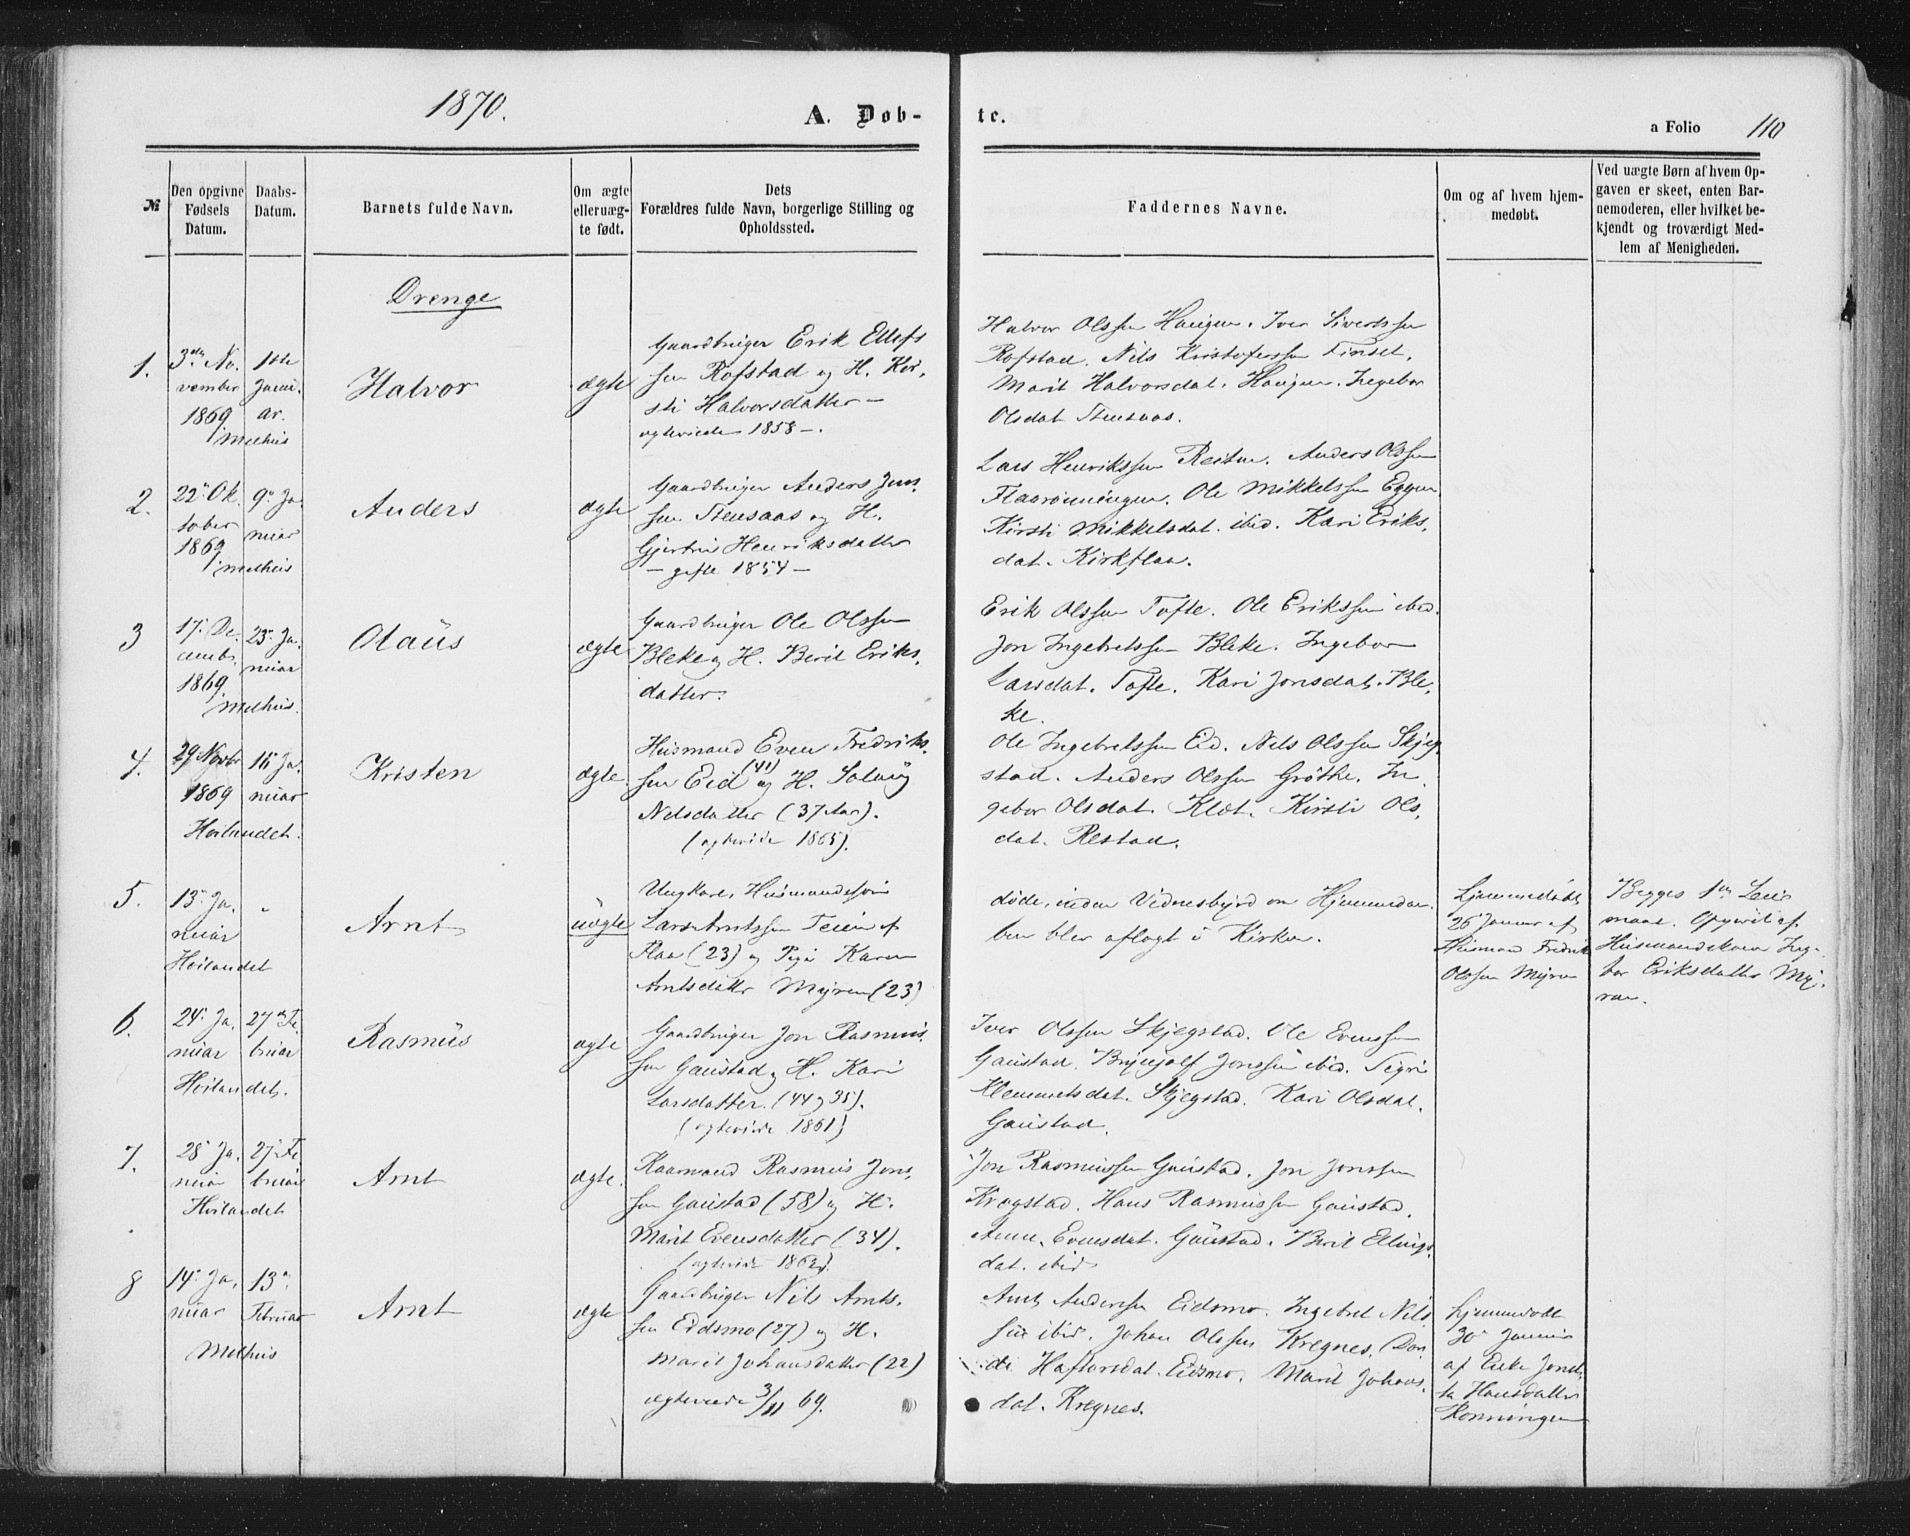 1870.
A. Døb-
te.
a Folio 110
№
Den opgivne
Fødsels
Datum.
Daabs-
Datum.
Barnets fulde Navn.
Om ægte
eller uæg-
te født.
Dets
Forældres fulde Navn, borgerlige Stilling og
Opholdssted.
Faddernes Navne.
Om og af hvem hjem-
medøbt.
Ved uægte Børn af hvem Op-
gaven er skeet, enten Bar-
nemoderen, eller hvilket be-
kjendt og troværdigt Med-
lem af Menigheden.
Drenge
1.
3die No.
vember
1869
1ste
Janu.
ar.
Melhus
Halvor
ægte
Gaardbruger Erik Ellefs
sen Rofstad og H. Kir,
sti Halvorsdatter —
ægteviede 1858 —.
Halvor Olssen Haugen. Iver Sivertssen
Rofstad. Nils Kristoferssen Finset.
Marit Halvorsdat. Haugen. Ingebor
Olsdat Stensaas.
2.
22. Ok.
tober
1869
9. Ja.
nuar
Melhus
Anders
ægte
Gaardbruger Anders Jens
sen Stensaas og H.
Gjertru Henriksdatter
— gifte 1854 —
Lars Henrikssen Reitan. Anders Olssen
Flaarønningen. Ole Mikkelssen Eggen.
Kirsti Mikkelsdat. ibid. Kari Eriks,
dat. Kirkflaa.
3
17. De.
cembr.
1869.
23. Ja.
nuar
Melhus.
Olaus
ægte
Gaardbruger Ole Olssen
Bleke og H. Berit Eriks,
datter.
Erik Olssen Tofte. Ole Erikssen ibid.
Jon Ingebretssen Bleke. Ingebor
Larsdat. Tofte. Kari Jonsdat. Ble,
ke.
4.
29 Novbr
1869
16 Ja.
nuar
Høilandet.
Kristen
ægte.
Husmand Even Fredriks.
sen Eid (41) og H. Solvig
Nilsdatter (37 Aar).
(ægteviede 1865).
Ole Ingebretssen Eid. Nils Olssen Skjeg
stad. Anders Olssen Grøthe. In
gebor Olsdat. Klet. Kirsti Ols,
dat. Restad.
5.
13. Ja.
nuar
Høilandet
Arnt
uægte
Ungkarl, Husmandssøn
Lars Arntssen Teien af
Flaa (23) og Pige Karen
Arntsdatter Myren (23)
døde, inden Vidnesbyrd om Hjemmedaa.
ben blev aflagt i Kirken.
hjemmedøbt
26 Januar af
Husmand Fredrik
Olssen Myren
Begges 1ste Leier
maal. Opgivet af
Husmandskone Inge-
bor Eriksdatter My.
ran.
6.
24. Ja.
nuar
27. Fe.
bruar
Høilandet.
Rasmus
ægte
Gaardbruger Jon Rasmus.
sen Gaustad og H. Kari
Larsdatter. (44 og 35).
(ægteviede 1861)
Iver Olssen Skjegstad. Ole Evenssen
Gaustad. Brynjolf Jonssen ibid. Sigri
Klemmetsdat. Skjegstad. Kari Olsdat.
Gaustad.
7.
28. Ja.
nuar
27. Fe
bruar
Høilandet
Arnt
ægte.
Kaarmand Rasmus Jons,
sen Gaustad (58) og H.
Marit Evensdatter (34).
(ægteviede 1862).
Jon Rasmussen Gaustad. Jon Jonssen
Krogstad. Hans Rasmussen Gaustad.
Anne. Evensdat. Gaustad. Berit Ellings
dat. ibid
8
14. Ja.
nuar
13.
Februar
Melhus
Arnt
ægte
Gaardbruger Nils Arnts.
sen Eidsmo (27) og H.
Marit Johansdatter (22)
ægteviede 3/11 69.
Arnt Anderssen Eidsmo. Ingebret Nils
sen ibid. Johan Olssen Kregnes. Don
di Haftorsdat. Eidsmo. Marit Johans.
dat. Kregnes.
hjemmedøbt
30. Januar
af Enke Jonet,
ta Hansdatter
Rønningen